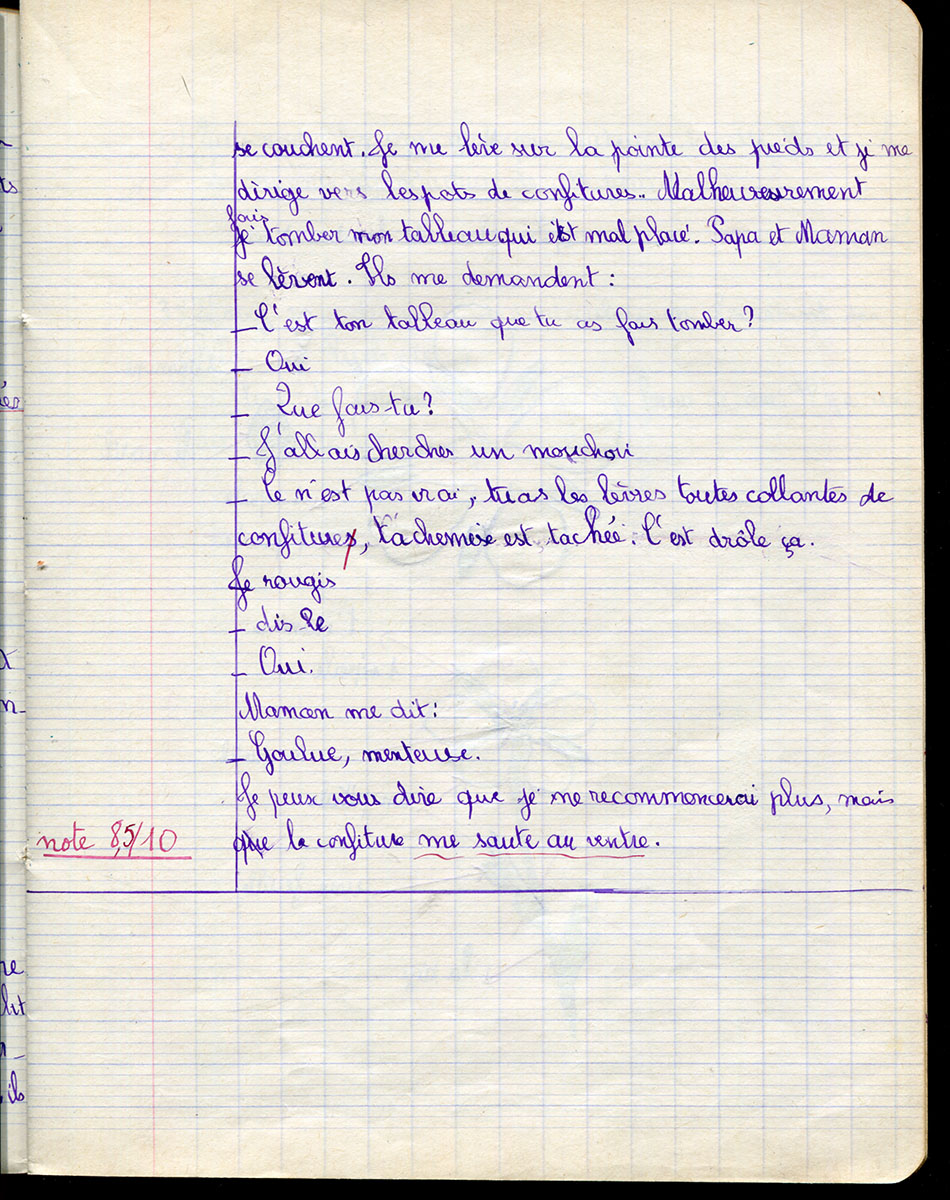 se couchent. Je me lève sur la pointe des pieds et je me
dirige vers les pots de confitures.. Malheureusement
fais
je tomber mon tableau qui est mal placé. Papa et Maman
se lèvent. Ils me demandent :
_ C'est ton tableau que tu as fais tomber?
_ Oui
_ Que fais-tu?
_ J'allais chercher un mouchoi
_ Ce n'est pas vrai, tu as les lèvres toutes collantes de
confitures, ta chemise est tachée. C'est drôle ça.
Je rougis
_ dis le
_ Oui.
Maman me dit :
_ Goulue, menteuse.
Je peux vous dire que je ne recommencerai plus, mais
note 8,5/10 que la confiture me saute au ventre.
ts
er
x
n_
re
ils